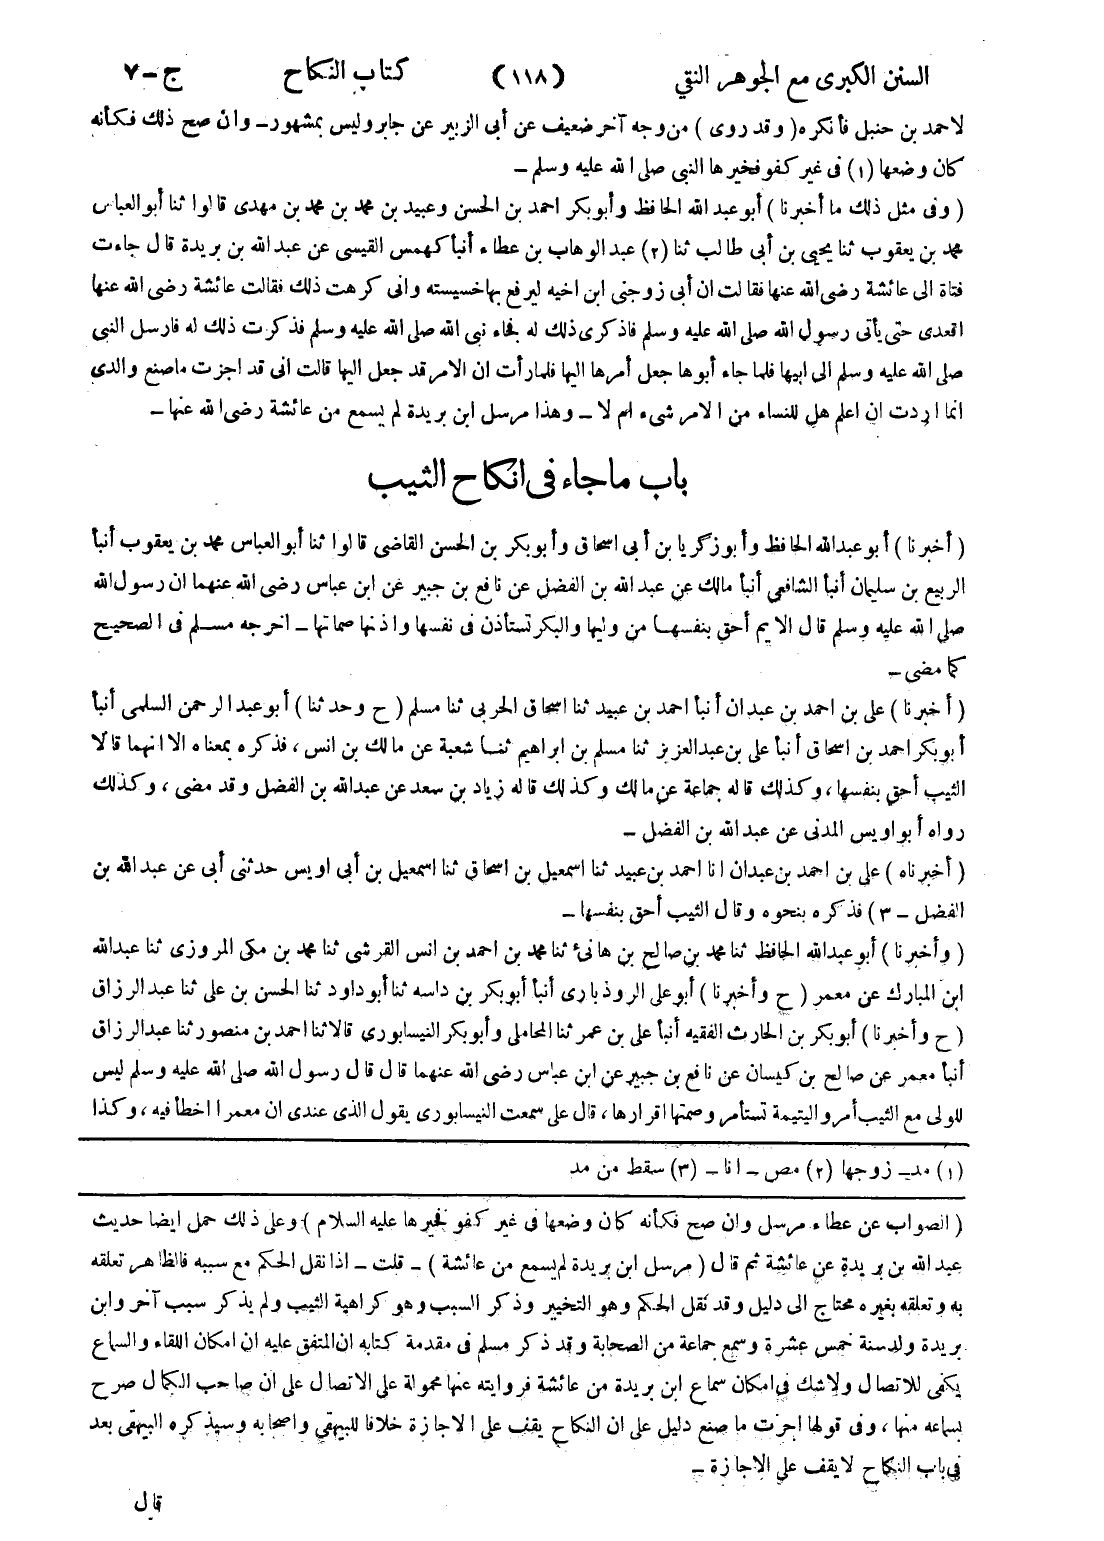 السنن الكبرى مع الجوهر النقي (١١٨) كتاب النكاح ج-٧
لاحمد بن حنبل فأنكره (وقد روى) من وجه آخر ضعيف عن أبى الزبير عن جابر وليس بمشهور- وان صح ذلك فكأنه
كان وضعها (١) فى غير كفو فخيرها النبى صلى الله عليه وسلم -
(وفى مثل ذلك ما أخبرنا) أبو عبد الله الحافظ وأبو بكر احمد بن الحسن وعبيد بن محمد بن محمد بن مهدى قالوا ثنا أبو العباس
محمد بن يعقوب ثنا يحيى بن أبى طالب ثنا (٢) عبد الوهاب بن عطاء أنبأ كهمس القيسى عن عبد الله بن بريدة قال جاءت
فتاة الى عائشة رضى الله عنها فقالت ان أبى زوجنى ابن اخيه ليرفع بها خسيسته وانى كرهت ذلك فقالت عائشة رضى الله عنها
اقعدى حتى يأتى رسول الله صلى الله عليه وسلم فاذكرى ذلك له فجاء نبى الله صلى الله عليه وسلم فذكرت ذلك له فارسل النبى
صلى الله عليه وسلم الى ابيها فلما جاء أبوها جعل أمرها اليها فلما رأت ان الامر قد جعل اليها قالت انى قد اجزت ما صنع والدى
انما اردت ان اعلم هل للنساء من الامر شىء ام لا - وهذا مرسل ابن بريدة لم يسمع من عائشة رضى الله عنها -
باب ما جاء فى انكاح الثيب
(أخبرنا) أبو عبد الله الحافظ وأبو زكريا بن أبى اسحاق وأبو بكر بن الحسن القاضى قالوا ثنا أبو العباس محمد بن يعقوب أنبأ
الربيع بن سليمان أنبأ الشافعى أنبأ مالك عن عبد الله بن الفضل عن نافع بن جبير عن ابن عباس رضى الله عنهما ان رسول الله
صلى الله عليه وسلم قال الايم أحق بنفسها من وليها والبكر تستأذن فى نفسها واذنها صماتها - اخرجه مسلم فى الصحيح
كما مضى -
(أخبرنا) على بن احمد بن عبدان أنبأ احمد بن عبيد ثنا اسحاق الحربى ثنا مسلم (ح وحدثنا) أبو عبد الرحمن السلمى أنبأ
أبو بكر احمد بن اسحاق أنبأ على بن عبد العزيز ثنا مسلم بن ابراهيم ثنا شعبة عن مالك بن انس، فذكره بمعناه الا انهما قالا
الثيب أحق بنفسها، وكذلك قاله جماعة عن مالك وكذلك قاله زياد بن سعد عن عبد الله بن الفضل وقد مضى، وكذلك
رواه أبو اويس المدنى عن عبد الله بن الفضل -
(أخبرناه) على بن احمد بن عبدان انا احمد بن عبيد ثنا اسمعيل بن اسحاق ثنا اسمعيل بن أبى اويس حدثنى أبى عن عبد الله بن
الفضل - ٣) فذكره بنحوه وقال الثيب أحق بنفسها -
(وأخبرنا) أبو عبد الله الحافظ ثنا محمد بن صالح بن هانئ ثنا محمد بن احمد بن انس القرشى ثنا محمد بن مكى المروزى ثنا عبد الله
ابن المبارك عن معمر (ح وأخبرنا) أبو على الروذبارى أنبأ أبو بكر بن داسه ثنا أبو داود ثنا الحسن بن على ثنا عبد الرزاق
(ح وأخبرنا) أبو بكر بن الحارث الفقيه أنبأ على بن عمر ثنا المحاملى وأبو بكر النيسابورى قالا ثنا احمد بن منصور ثنا عبد الرزاق
أنبأ معمر عن صالح بن كيسان عن نافع بن جبير عن ابن عباس رضى الله عنهما قال قال رسول الله صلى الله عليه وسلم ليس
للولى مع الثيب أمر واليتيمة تستأمر وصمتها اقرارها، قال على سمعت النيسابورى يقول الذى عندى ان معمرا اخطأ فيه، وكذا
(١) مد- زوجها (٢) مص - انا - (٣) سقط من مد
(الصواب عن عطاء مرسل وان صح فكأنه كان وضعها فى غير كفو فخيرها عليه السلام) وعلى ذلك حمل ايضا حديث
عبد الله بن بريدة عن عائشة ثم قال (مرسل ابن بريدة لم يسمع من عائشة) - قلت - اذا نقل الحكم مع سببه فالظاهر تعلقه
به وتعلقه بغيره محتاج الى دليل وقد نقل الحكم وهو التخيير وذكر السبب وهو كراهية الثيب ولم يذكر سبب آخر وابن
بريدة ولد سنة خمس عشرة وسمع جماعة من الصحابة وقد ذكر مسلم فى مقدمة كتابه ان المتفق عليه ان امكان اللقاء والسماع
يكفى للاتصال ولا شك فى امكان سماع ابن بريدة من عائشة فروايته عنها محمولة على الاتصال على ان صاحب الكمال صرح
بسماعه منها، وفى قولها اجزت ما صنع دليل على ان النكاح يقف على الاجازة خلافا للبيهقى واصحابه وسيذكره البيهقى بعد
فى باب النكاح لا يقف على الاجازة -
قال